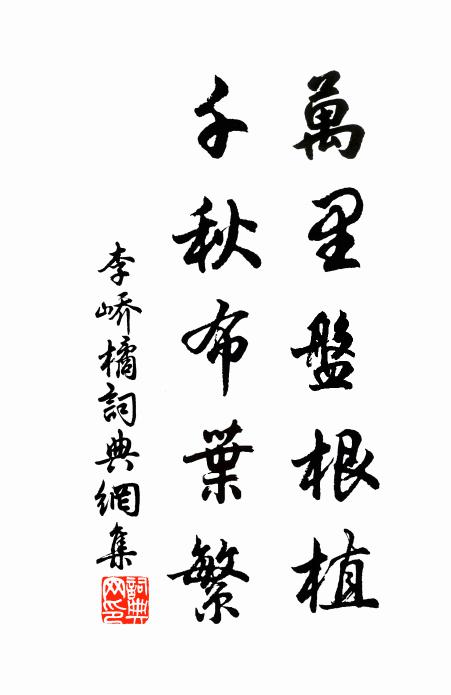 萬里盤根植
千秋布葉繁
李嶠橘詞典網集
詞典网印